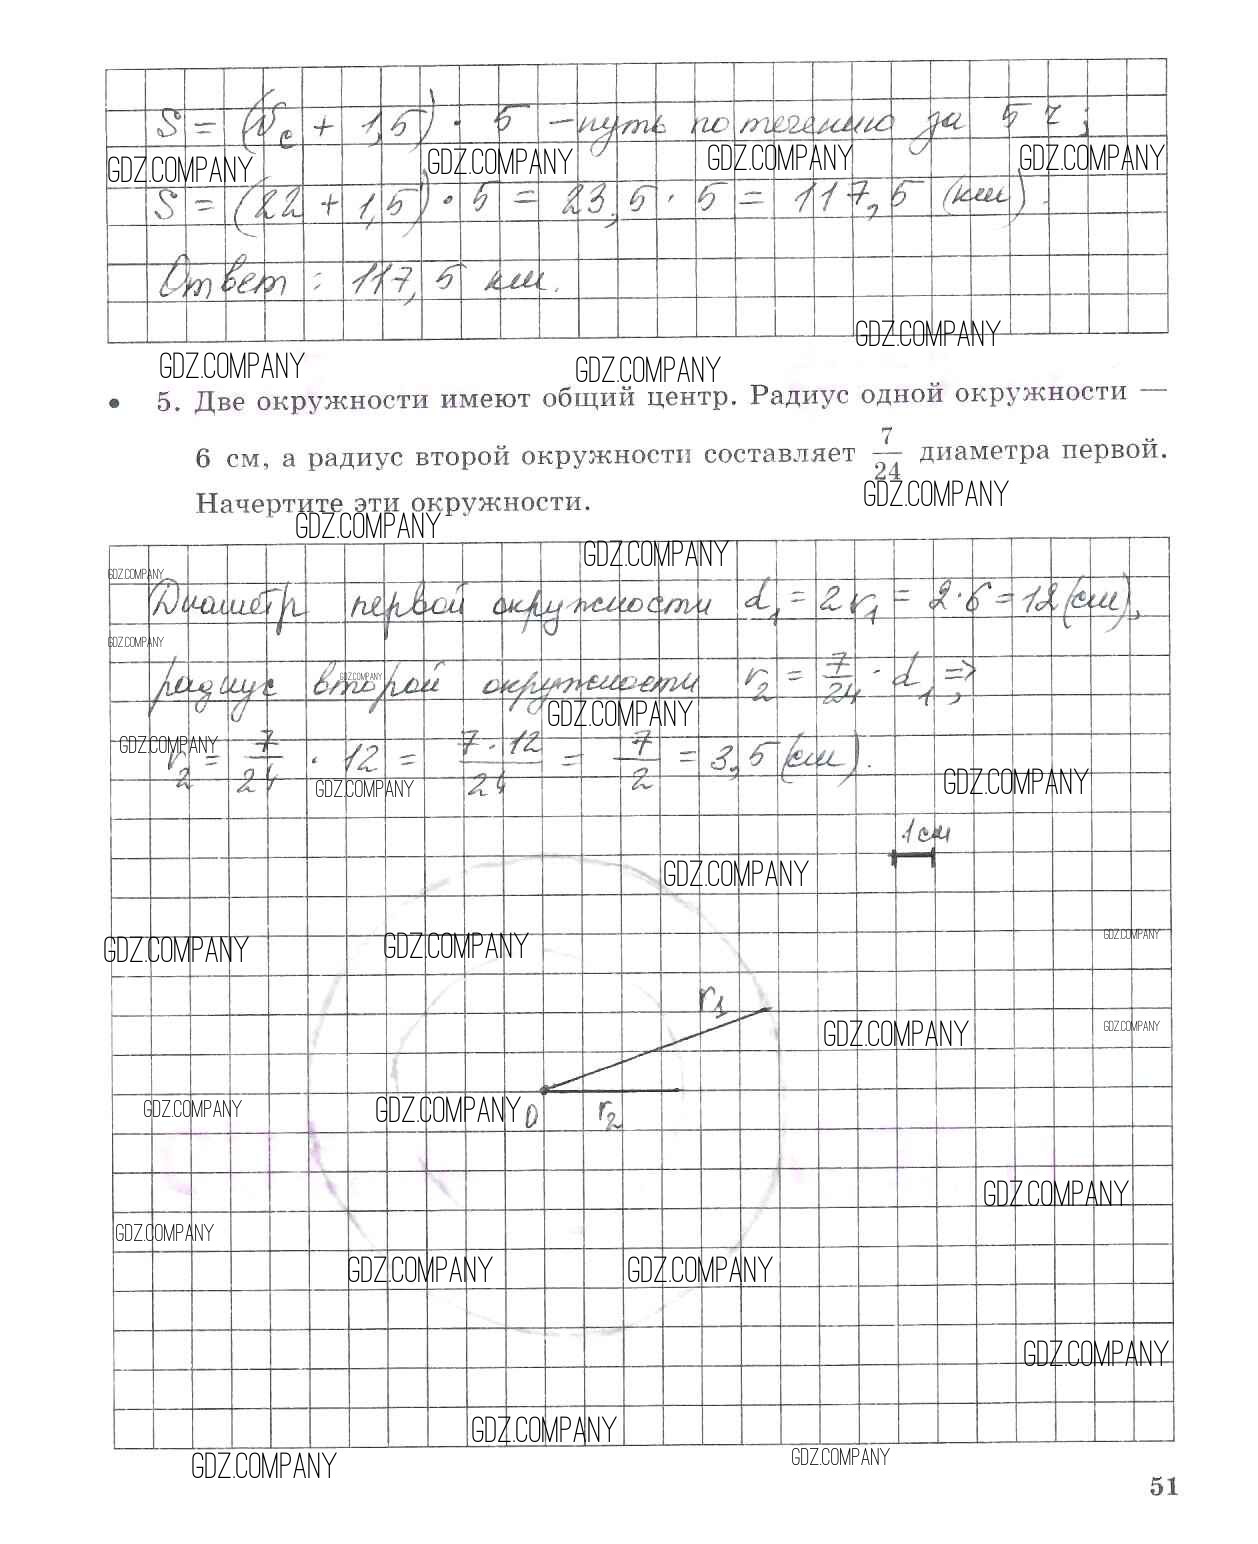 S = (Vс + 1,5) · 5 – путь по течению за 5 ч;
GDZ.COMPANY GDZ.COMPANY GDZ.COMPANY GDZ.COMPANY
S = (22 + 1,5) · 5 = 23,5 · 5 = 117,5 (км).
Ответ: 117,5 км.
GDZ.COMPANY
GDZ.COMPANY GDZ.COMPANY
• 5. Две окружности имеют общий центр. Радиус одной окружности —
6 см, а радиус второй окружности составляет 7/24 диаметра первой.
GDZ.COMPANY
Начертите эти окружности.
GDZ.COMPANY
GDZ.COMPANY
GDZ.COMPANY
Диаметр первой окружности d1 = 2r1 = 2·6 = 12 (см),
GDZ.COMPANY
GDZ.COMPANY
радиус второй окружности r2 = 7/24 · d1 ⇒
GDZ.COMPANY
GDZ.COMPANY
r2 = 7/24 · 12 = 7·12/24 = 7/2 = 3,5 (см).
GDZ.COMPANY GDZ.COMPANY
1 см
GDZ.COMPANY
GDZ.COMPANY GDZ.COMPANY GDZ.COMPANY
r1
GDZ.COMPANY GDZ.COMPANY
GDZ.COMPANY GDZ.COMPANY O r2
GDZ.COMPANY
GDZ.COMPANY
GDZ.COMPANY GDZ.COMPANY
GDZ.COMPANY
GDZ.COMPANY
GDZ.COMPANY GDZ.COMPANY
51